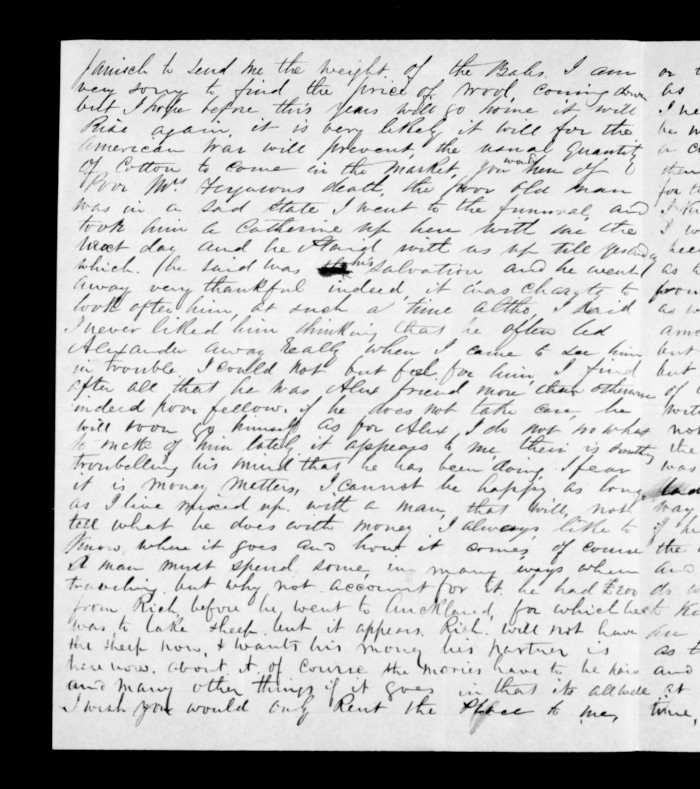 Janisch to send me the weight of the Bales. I am
very sorry to find the price of wool, coming down
but I hope before this years will go home it will
Rise again, it is very likely it will for the
American war will prevent, the usual quantity
of Cotton to come in the market, you would hear of
Poor Mrs Fergusons death, the poor old man
was in a sad state I went to the funeral, and
took him a Catherine up here with me the
next day and he staid with us up till yesterday
which (he said was his salvation and he went
away very thankful indeed it was charity to
look after him, at such a time altho I said
I never liked him thinking that he often led
Alexander away Really when I came to see him
in trouble, I could not but feel for him I find
after all that he was Alex friend more than otherwise
indeed poor fellow. if he does not take care, he
will soon go himself as for Alex I do not no what
to make of him lately it appears to me, their is somthing
troubelling his mind that, he has been doing I fear
it is money matters, I cannot be happy as long
as I live mixed up with a man, that will, not
tell what he does with money I always like to
Know, where it goes and how it comes, of course
A man must spend some, in many ways when
traveling but why not account for it, he had £200
from Rich, before he went to Auckland, for which he
was to take sheep but it appears. Rich. will not have
the sheep now, & wants his money his partner is
here now. about it, of course the mories have to be
and many other things if it goes in that its all well
I wish you would only Rent the place to me,
or
as
I
be
a
then
for
I
I
as
from
as
but
but
of
with
not
the
was
way
if
the
and
do
to
an
as
and
at
time,